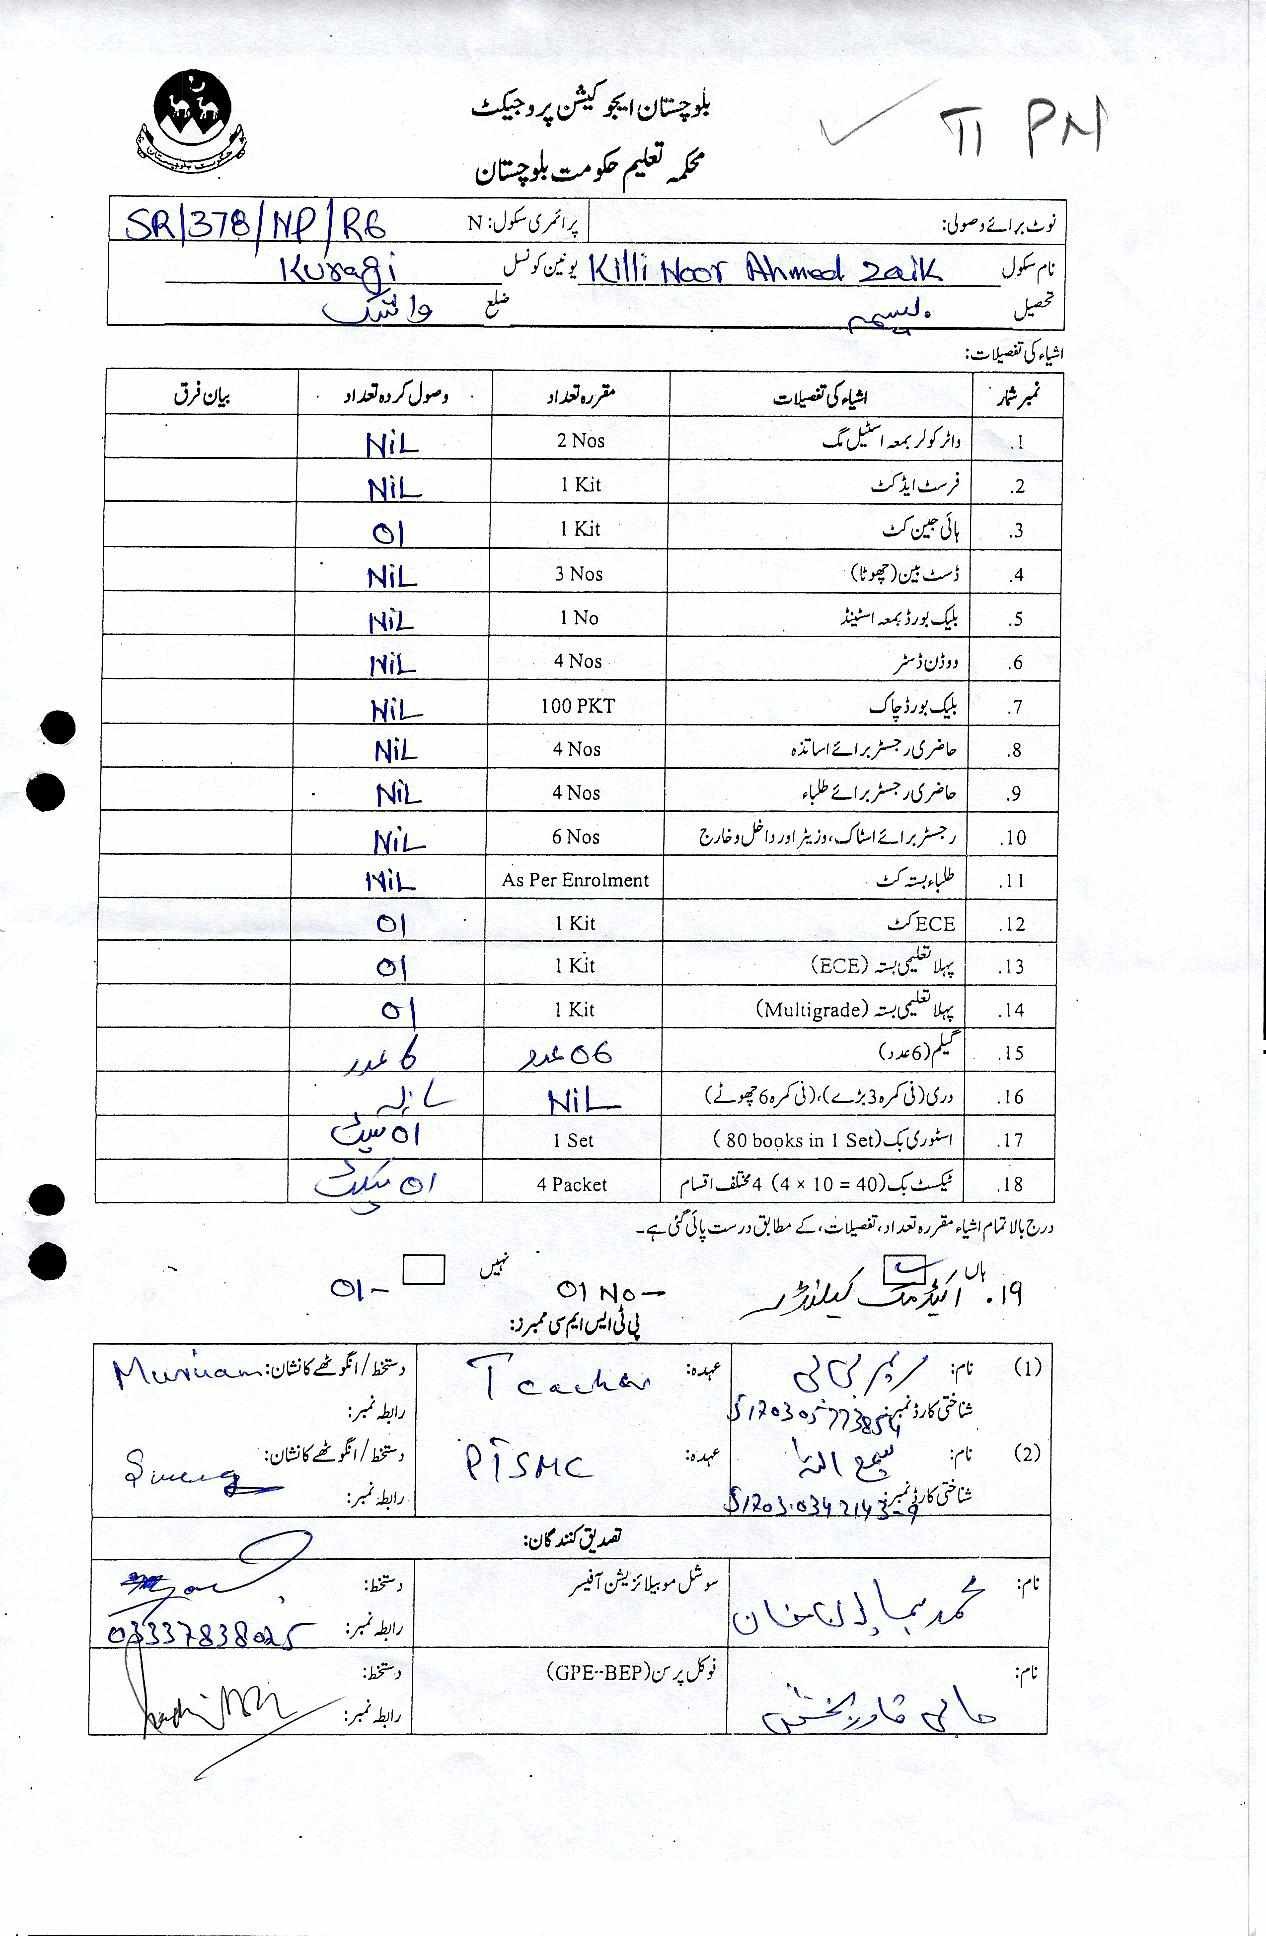 بلوچستان ایجوکیشن پروجیکٹ
محکمہ تعلیم حکومت بلوچستان
TI PM
نوٹ برائے وصولی: پرائمری سکول: N SR/378/NP/R6
نام سکول Killi Noor Ahmed Zaik یونین کونسل Kuragi
تحصیل بسیمہ ضلع واشک
اشیاء کی تفصیلات:
نمبر شمار اشیاء کی تفصیلات مقررہ تعداد وصول کردہ تعداد بیان فرق
1. واٹر کولر بمعہ اسٹیل مگ 2 Nos NiL
2. فرسٹ ایڈ کٹ 1 Kit NiL
3. ہائی جین کٹ 1 Kit 01
4. ڈسٹ بین (چھوٹا) 3 Nos NiL
5. بلیک بورڈ بمعہ اسٹینڈ 1 No NiL
6. ووڈن ڈسٹر 4 Nos NiL
7. بلیک بورڈ چاک 100 PKT NiL
8. حاضری رجسٹر برائے اساتذہ 4 Nos NiL
9. حاضری رجسٹر برائے طلباء 4 Nos NiL
10. رجسٹر برائے اسٹاک، وزیٹر اور داخل و خارج 6 Nos NiL
11. طلباء بستہ کٹ As Per Enrolment NiL
12. ECE کٹ 1 Kit 01
13. پہلا تعلیمی بستہ (ECE) 1 Kit 01
14. پہلا تعلیمی بستہ (Multigrade) 1 Kit 01
15. گیلم (6 عدد) 06 عدد 6 عدد
16. دری (فی کمرہ 3 بڑے)، (فی کمرہ 6 چھوٹے) NiL
17. اسٹوری بک (80 books in 1 Set) 1 Set 01 سیٹ
18. ٹیکسٹ بک (4 × 10 = 40) 4 مختلف اقسام 4 Packet 01 پیکٹ
درج بالا تمام اشیاء مقررہ تعداد، تفصیلات، کے مطابق درست پائی گئی ہے۔
ہاں نہیں
۱۹. کیلنڈر 01 No — 01 –
پی ٹی ایس ایم سی ممبرز:
(1) نام: مریم بی بی عہدہ: Teacher دستخط/انگوٹھے کا نشان: Muriam
شناختی کارڈ نمبر: رابطہ نمبر:
(2) نام: سمیع اللہ عہدہ: PTSMC دستخط/انگوٹھے کا نشان:
شناختی کارڈ نمبر: 51203-0342143-9 رابطہ نمبر:
تصدیق کنندگان:
نام: محمد خان سوشل موبیلائزیشن آفیسر دستخط:
رابطہ نمبر: 03337838025
نام: حاجی قادر بخش فوکل پرسن (GPE--BEP) دستخط:
رابطہ نمبر: